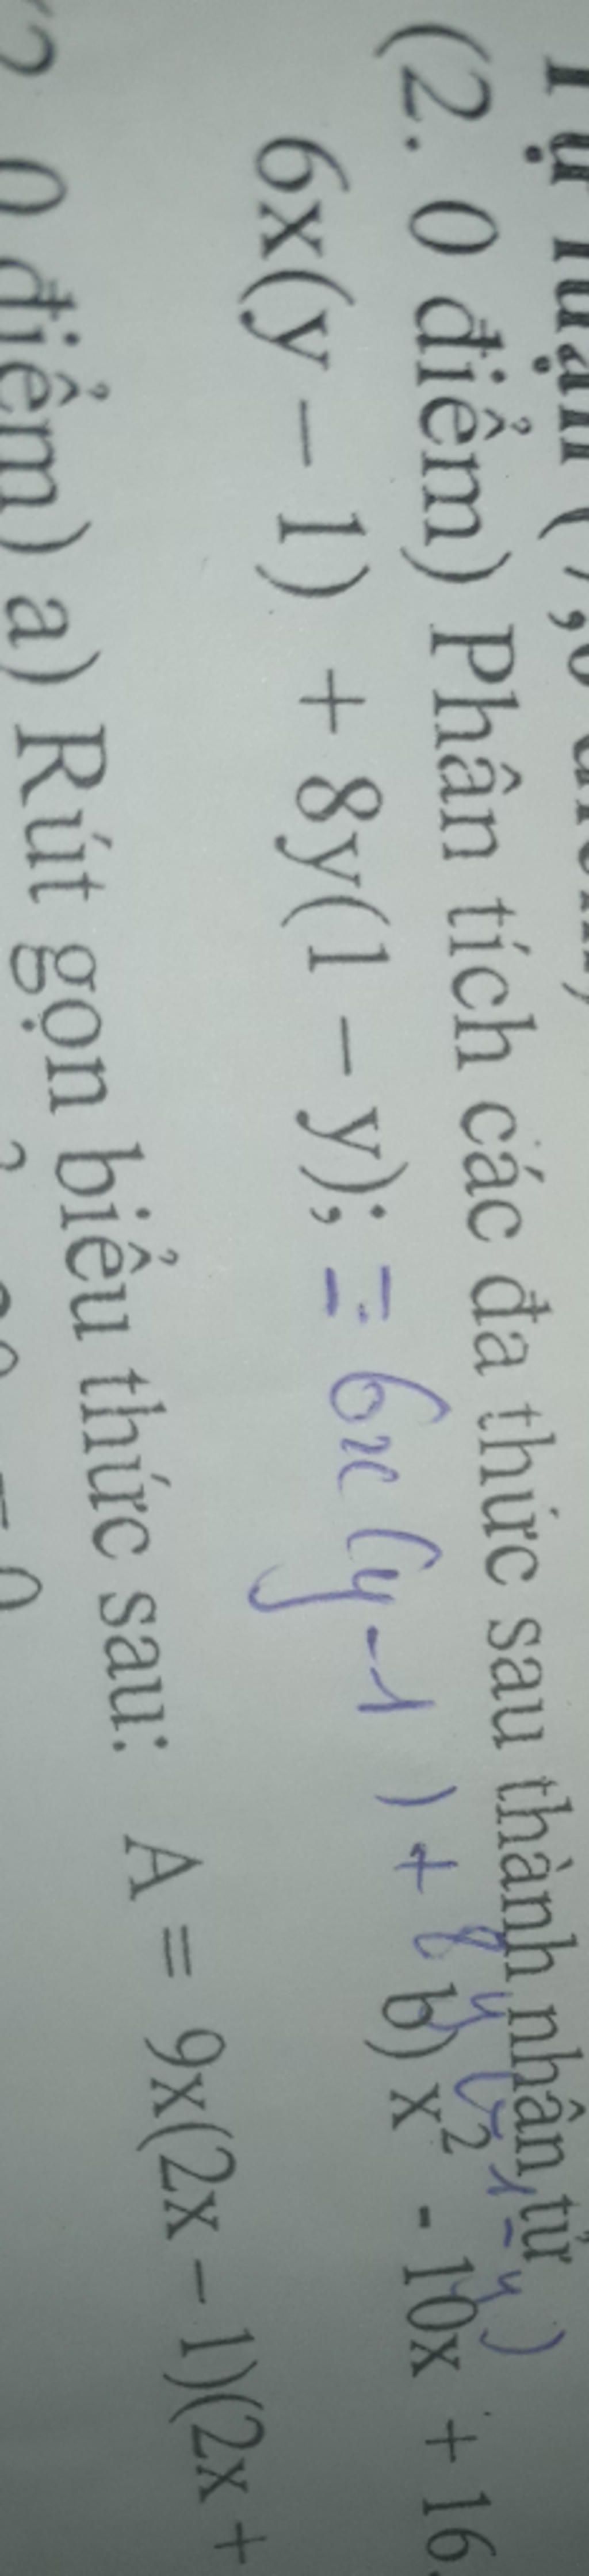 Tự luận (7,0 điểm)
(2. 0 điểm) Phân tích các đa thức sau thành nhân tử
6x(y – 1) + 8y(1 – y); = 6x(y-1) + 8y(-1-y) b) x² - 10x + 16.
0 điểm) a) Rút gọn biểu thức sau: A = 9x(2x – 1)(2x +